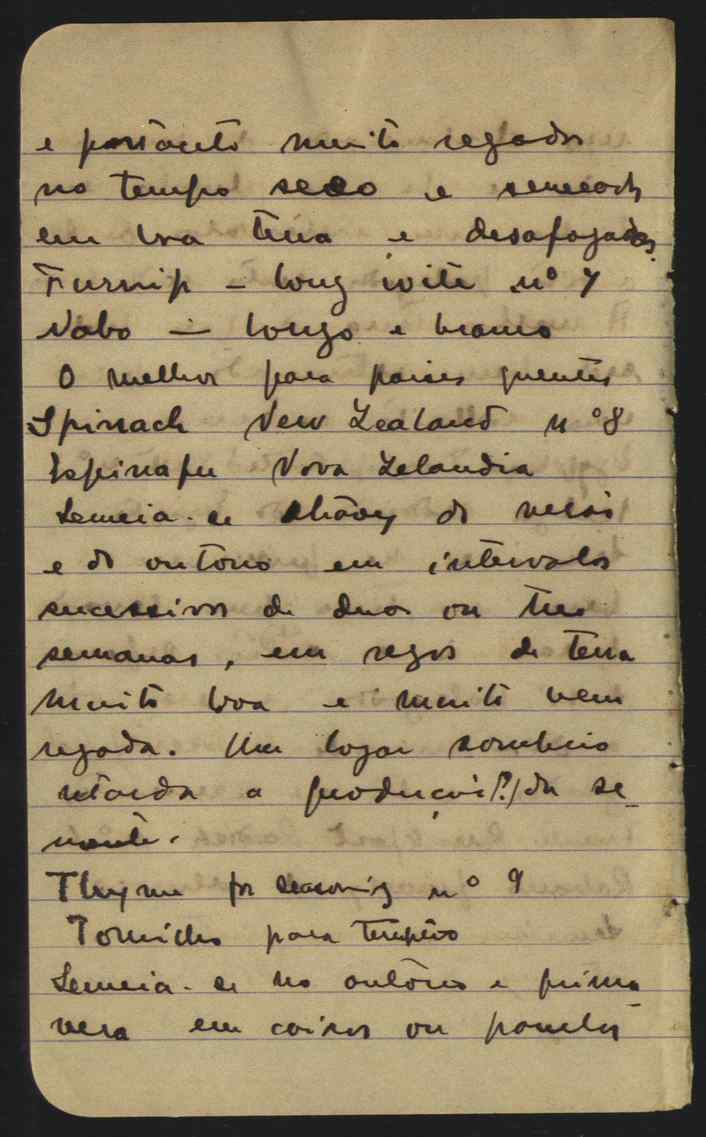 e portanto muito regados
no tempo seco e semeados
em boa terra e desafogados.
Turnip – long wite nº 7
Nabo – longo e branco
O melhor para paises quentes
Spinach New Zealand nº 8
Espinafre Nova Zelandia
Semeia-se atravez do verão
e do outono em intervalos
sucessivos de duas ou tres
semanas, em regos de terra
muito boa e muito bem
regada. Um logar sombrio
retarda a producção (?) da se_
mente.
Thyme for seasoning nº 9
Tomilho para tempêro
Semeia-se no outôno e prima_
vera em caixas ou panelas